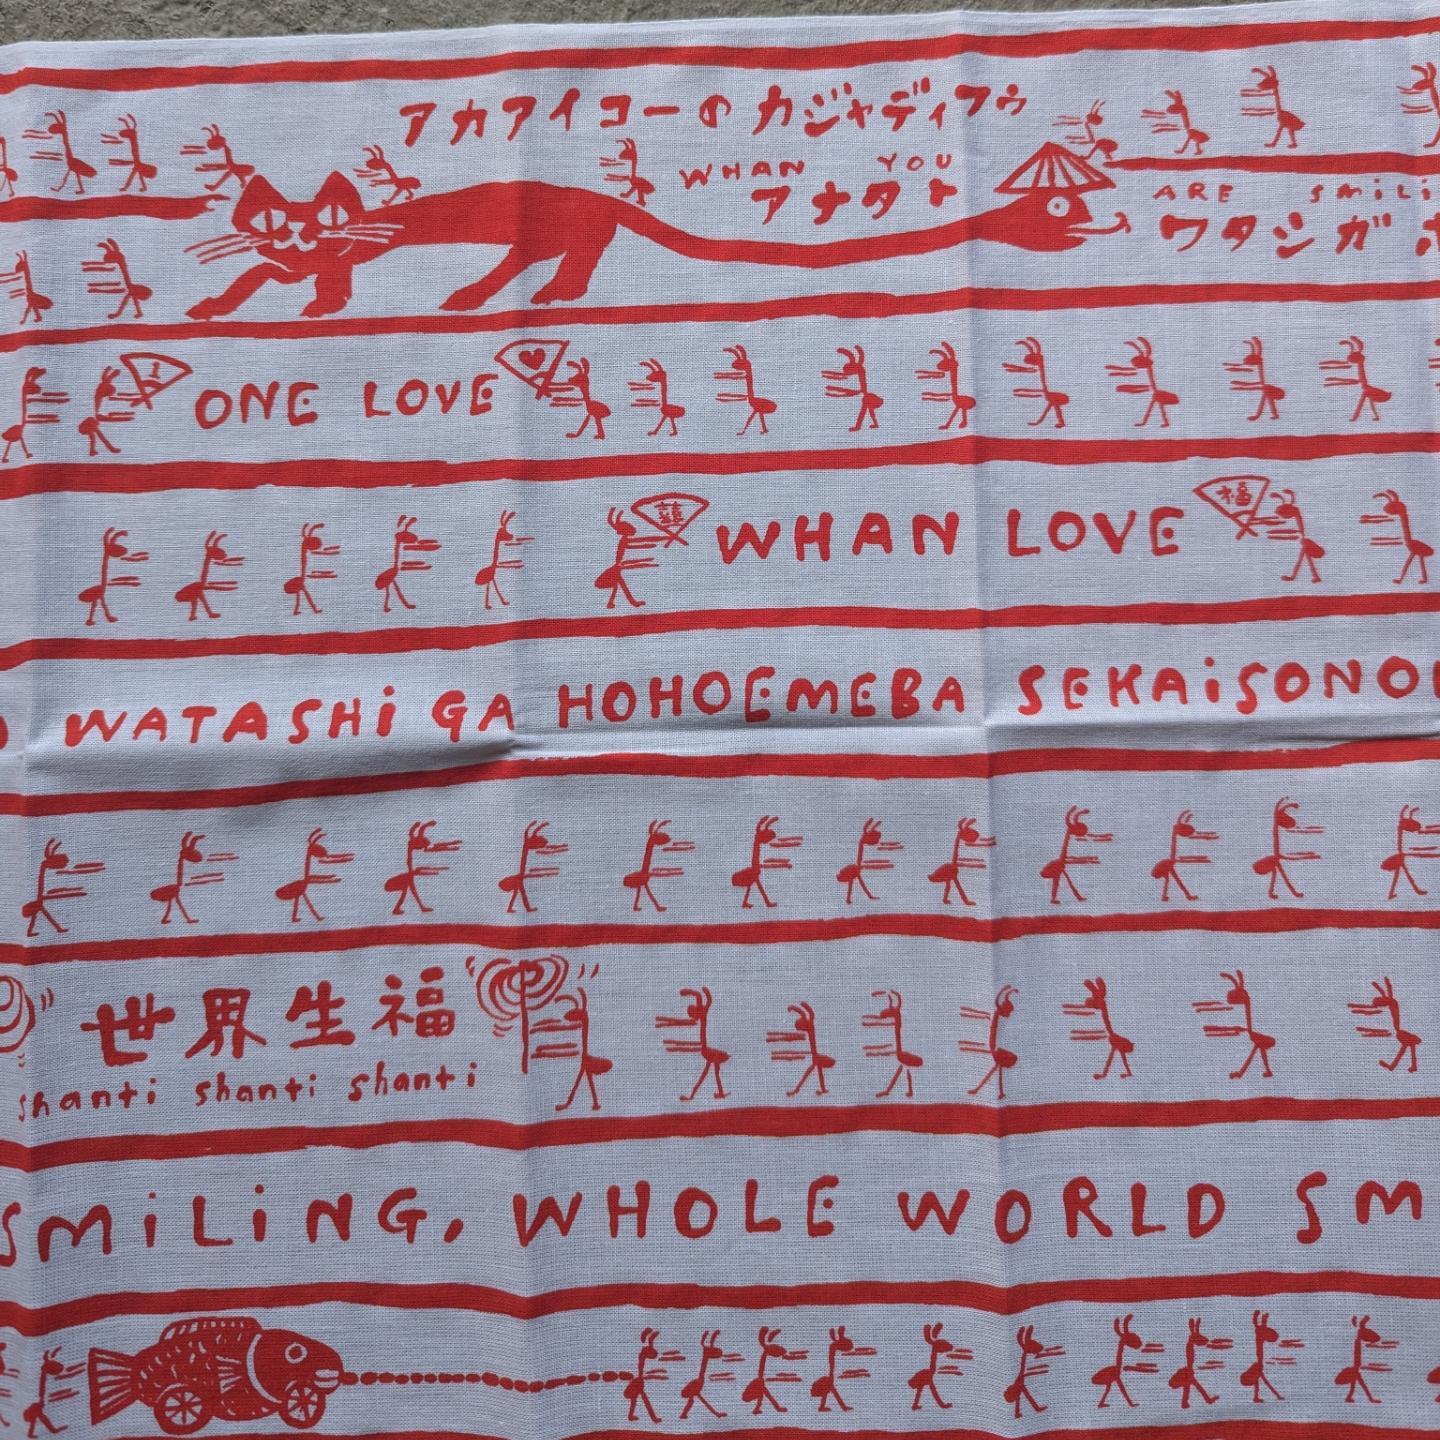 アカアイコーのカジャディフゥ
WHAN YOU
アナタト
ARE SMiLi
ワタシガ
ONE LOVE
囍 WHAN LOVE 福
WATASHi GA HOHOEMEBA SEKAiSONO
世界生福
shanti shanti shanti
SMiLiNG, WHOLE WORLD SM